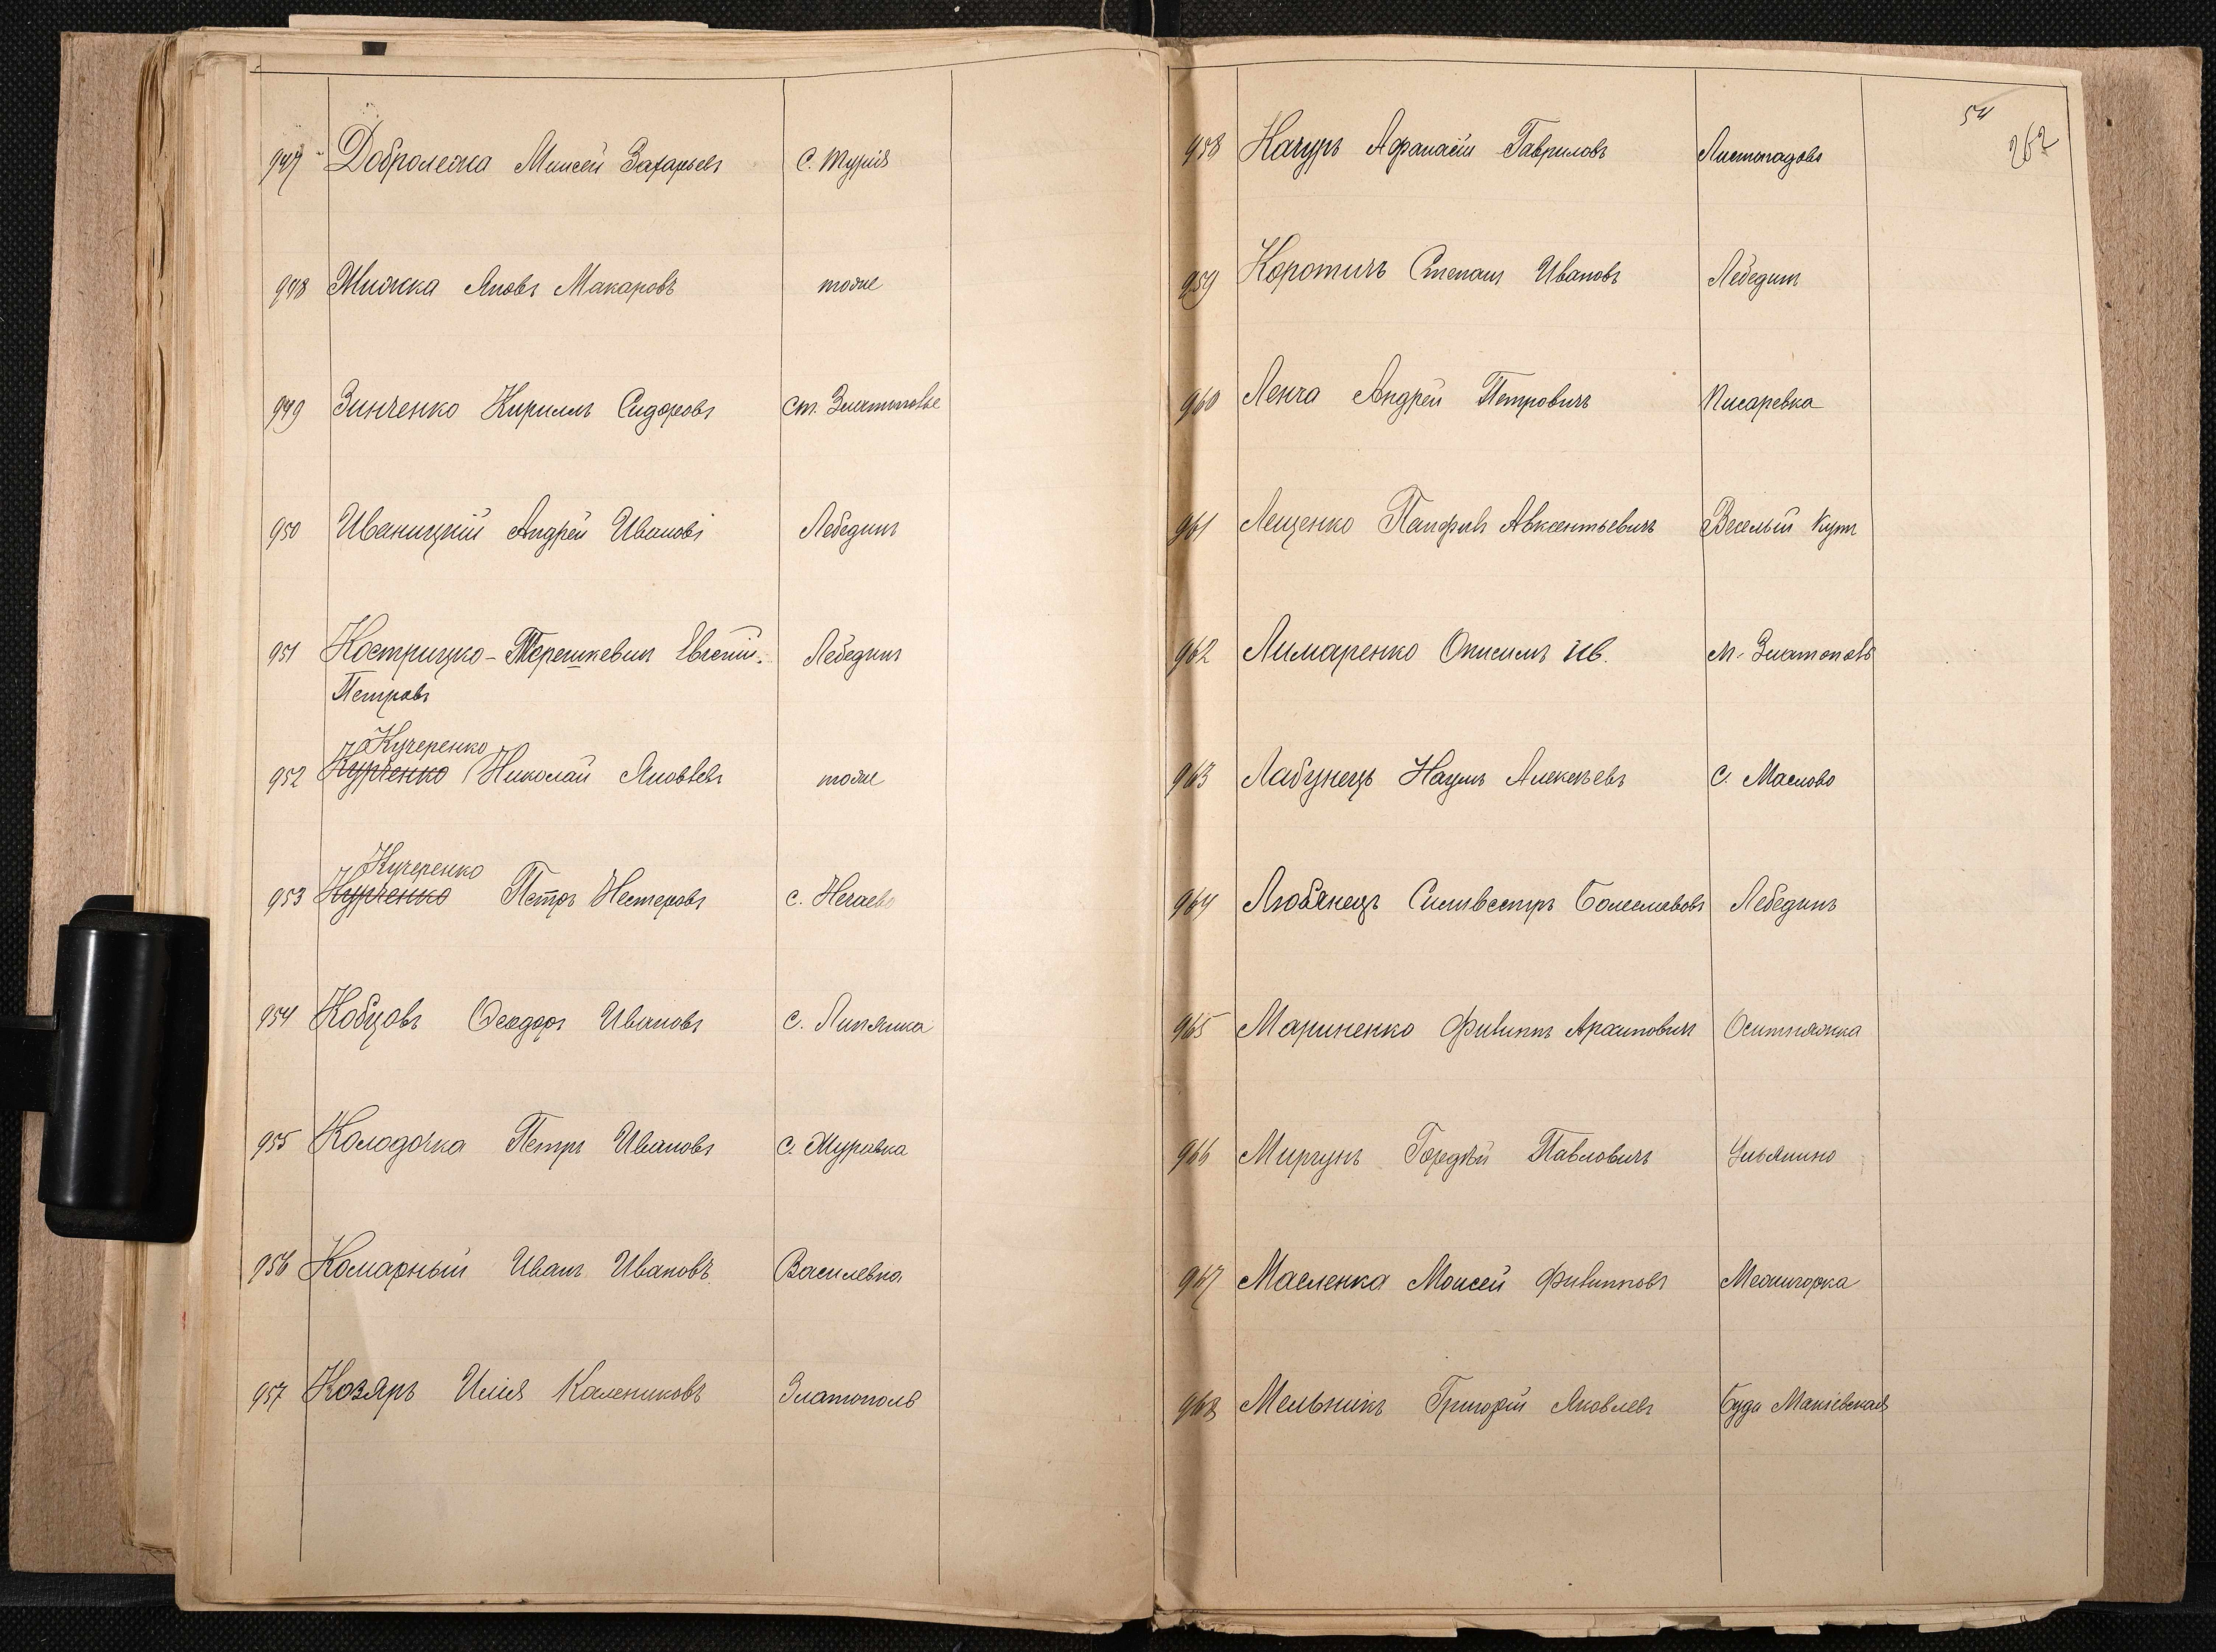 947 Добролежа Моисей Захарьевъ с. Турія
948 Жижка Яковъ Макаровъ тоже
949 Зинченко Кириллъ Сидоровъ ст. Златополье
950 Иваницкій Андрей Ивановъ Лебединъ
951 Кострицко-Терешкевич Евгеній. Лебединъ
Петровъ
Кучеренко
952 Курченко Николай Яковлевъ тоже
Кучеренко
953 Курченко Петръ Нестеровъ с. Нечаево
954 Кобцовъ Ѳеодоръ Ивановъ с. Липянка
955 Колодочка Петръ Ивановъ с. Журавка
956 Комарный Иванъ Ивановъ Василевка
957 Козяръ Илія Калениковъ Златополь
54
262
958 Качуръ Афанасій Гавриловъ Листопадово
959 Коротичъ Степанъ Ивановъ Лебединъ
960 Ленча Андрей Петровичъ Писаревка
961 Лещенко Панфилъ Авксентьевичъ Веселый Кутъ
962 Лимаренко Онисимъ Ив. м. Златополь
963 Лабунецъ Наумъ Алексѣевъ с. Маслово
964 Любанецъ Сильвестръ Болеславовъ Лебединъ
965 Мариненко Филиппъ Архиповичъ Оситняжка
966 Миргунъ Гордѣй Павловичъ Ульянино
967 Масленка Моисей Филипповъ Межигорка
968 Мельникъ Григорій Яковлевъ Буда Макіевская